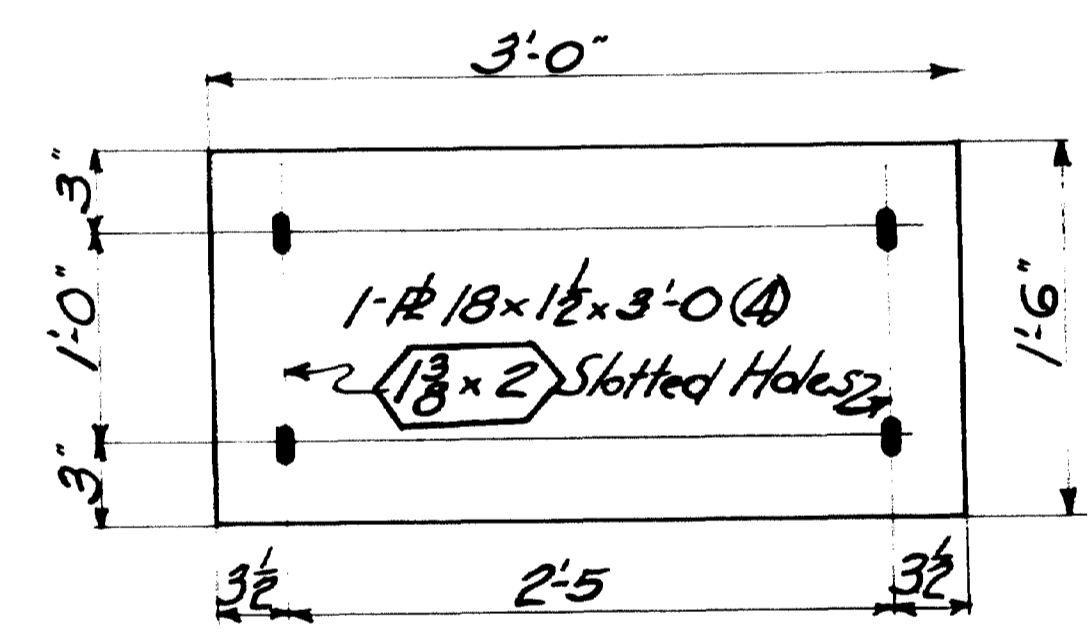 3'-0"
3"
1'-0"
3"
1'-6"
1-PL 18 x 1 1/2 x 3'-0 (A)
1 3/8 x 2 Slotted Holes
3 1/2
2'-5
3 1/2